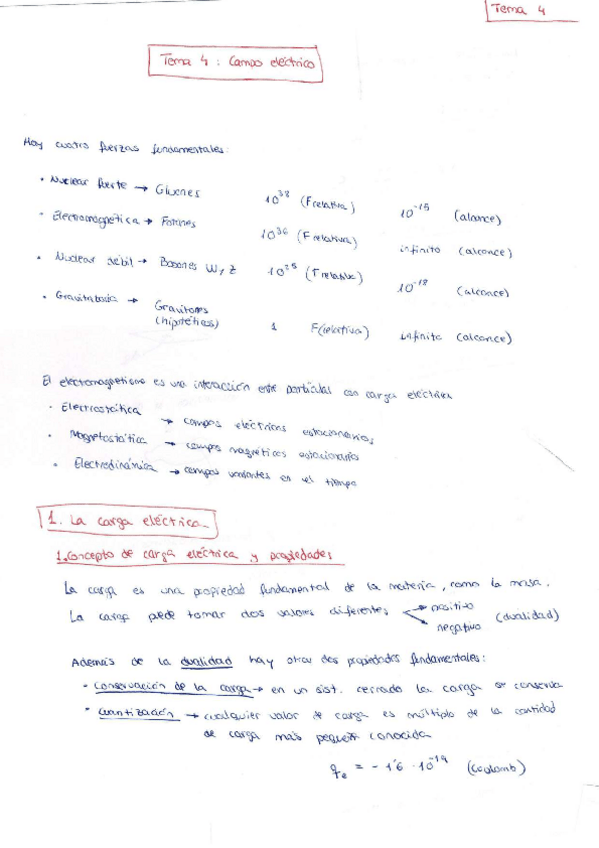 Tema 4
Tema 4 : Campo eléctrico
Hay cuatro fuerzas fundamentales:
• Nuclear fuerte → Gluones 10³⁸ (F relativa) 10⁻¹⁵ (alcance)
• Electromagnética → Fotones 10³⁶ (F relativa) infinito (alcance)
• Nuclear débil → Bosones W, Z 10²⁵ (F relativa) 10⁻¹⁸ (alcance)
• Gravitatoria → Gravitones (hipotéticos) 1 F(relativa) infinito (alcance)
El electromagnetismo es una interacción entre partículas con carga eléctrica
• Electrostática → campos eléctricos estacionarios
• Magnetostática → campos magnéticos estacionarios
• Electrodinámica → campos variantes en el tiempo
1. La carga eléctrica.
1. Concepto de carga eléctrica y propiedades
La carga es una propiedad fundamental de la materia, como la masa.
La carga puede tomar dos valores diferentes → positivo
→ negativo (dualidad)
Además de la dualidad hay otras dos propiedades fundamentales:
• Conservación de la carga → en un sist. cerrado la carga se conserva
• Cuantización → cualquier valor de carga es múltiplo de la cantidad
de carga más pequeña conocida
qₑ = - 1'6 · 10⁻¹⁹ (Coulomb)